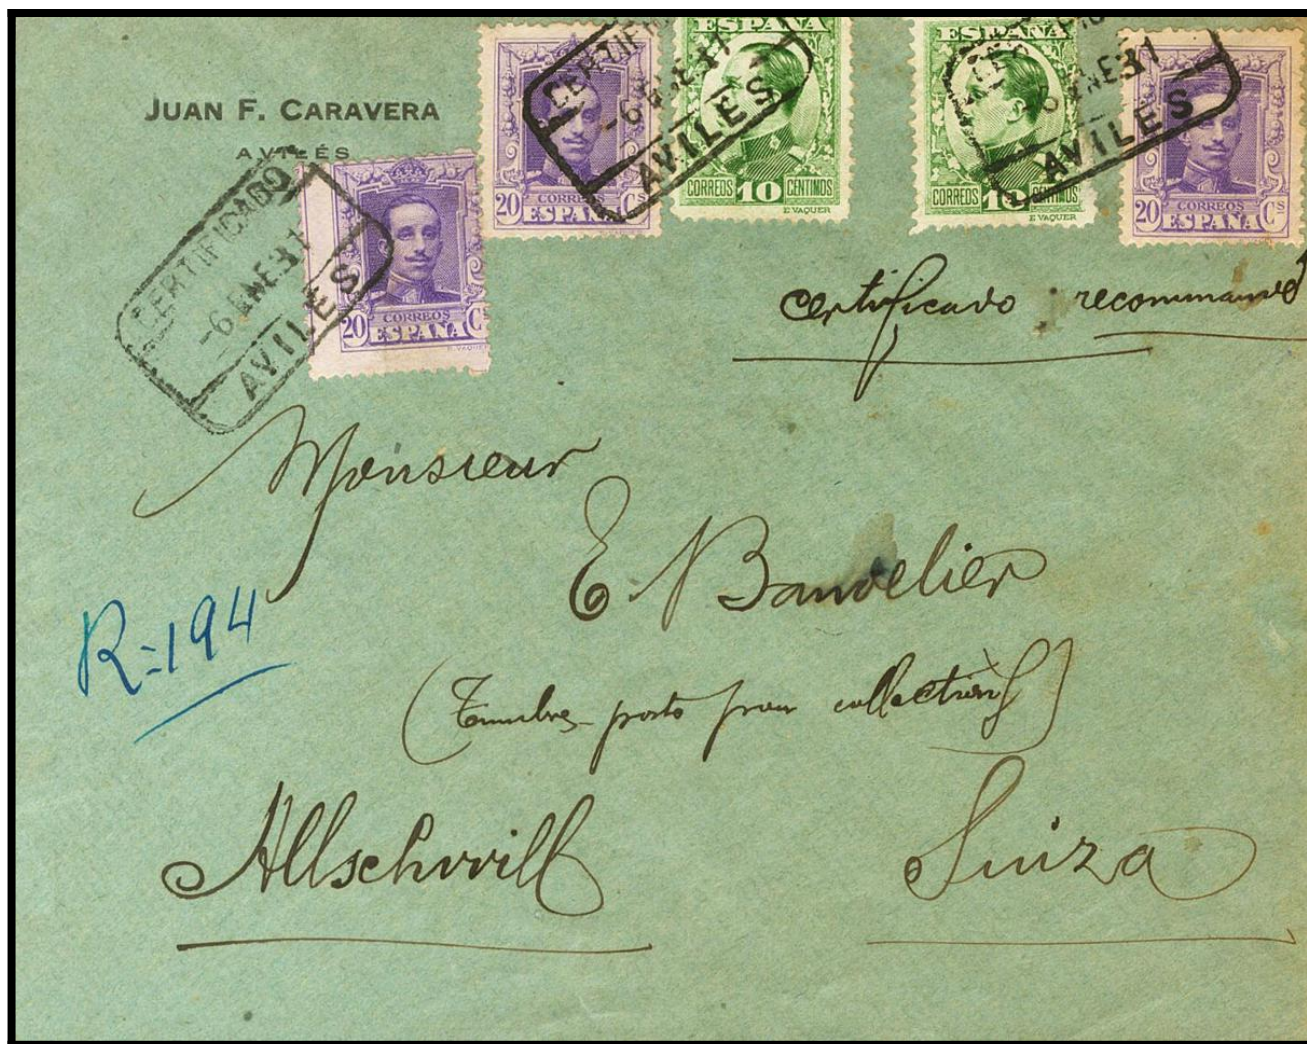 JUAN F. CARAVERA
AVILÉS
CERTIFICADO
-6 ENE 31
AVILES
20 CORREOS Cs
ESPAÑA
E. VAQUER
CERTIFI
-6 ENE 31
AVILES
20 CORREOS Cs
ESPAÑA
ESPAÑA
CORREOS 10 CENTIMOS
E. VAQUER
ESPAÑA
CORREOS 10 CENTIMOS
E. VAQUER
-6 ENE 31
AVILES
20 CORREOS Cs
ESPAÑA
certificado recommandé
Monsieur
E Bandelier
R=194
(Timbres-posto pour collections)
Allschwill Suiza